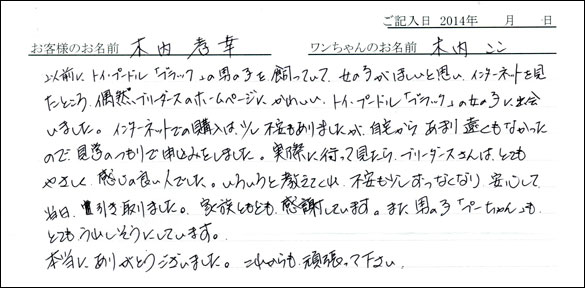 ご記入日 2014年 月 日
お客様のお名前 木内 孝幸 ワンちゃんのお名前 木内 ココ
以前に、トイ・プードル「ブラック」の男の子を飼っていて、女の子がほしいと思い、インターネットを見
たところ、偶然、ブリーダースのホームページに、かわいい、トイ・プードル「ブラック」の女の子に出会
いました。インターネットでの購入は、少し不安もありましたが、自宅からあまり遠くもなかった
ので、見学のつもりで申込みをしました。実際に行って見たら、ブリーダースさんは、とても
やさしく、感じの良い人でした。いろいろと教えてくれ、不安も少しずつなくなり、安心して
当日、引き取りました。家族ともども、感謝しています。また、男の子「プーちゃん」も、
とてもうれしそうにしています。
本当に、ありがとうございました。これからも、頑張って下さい。